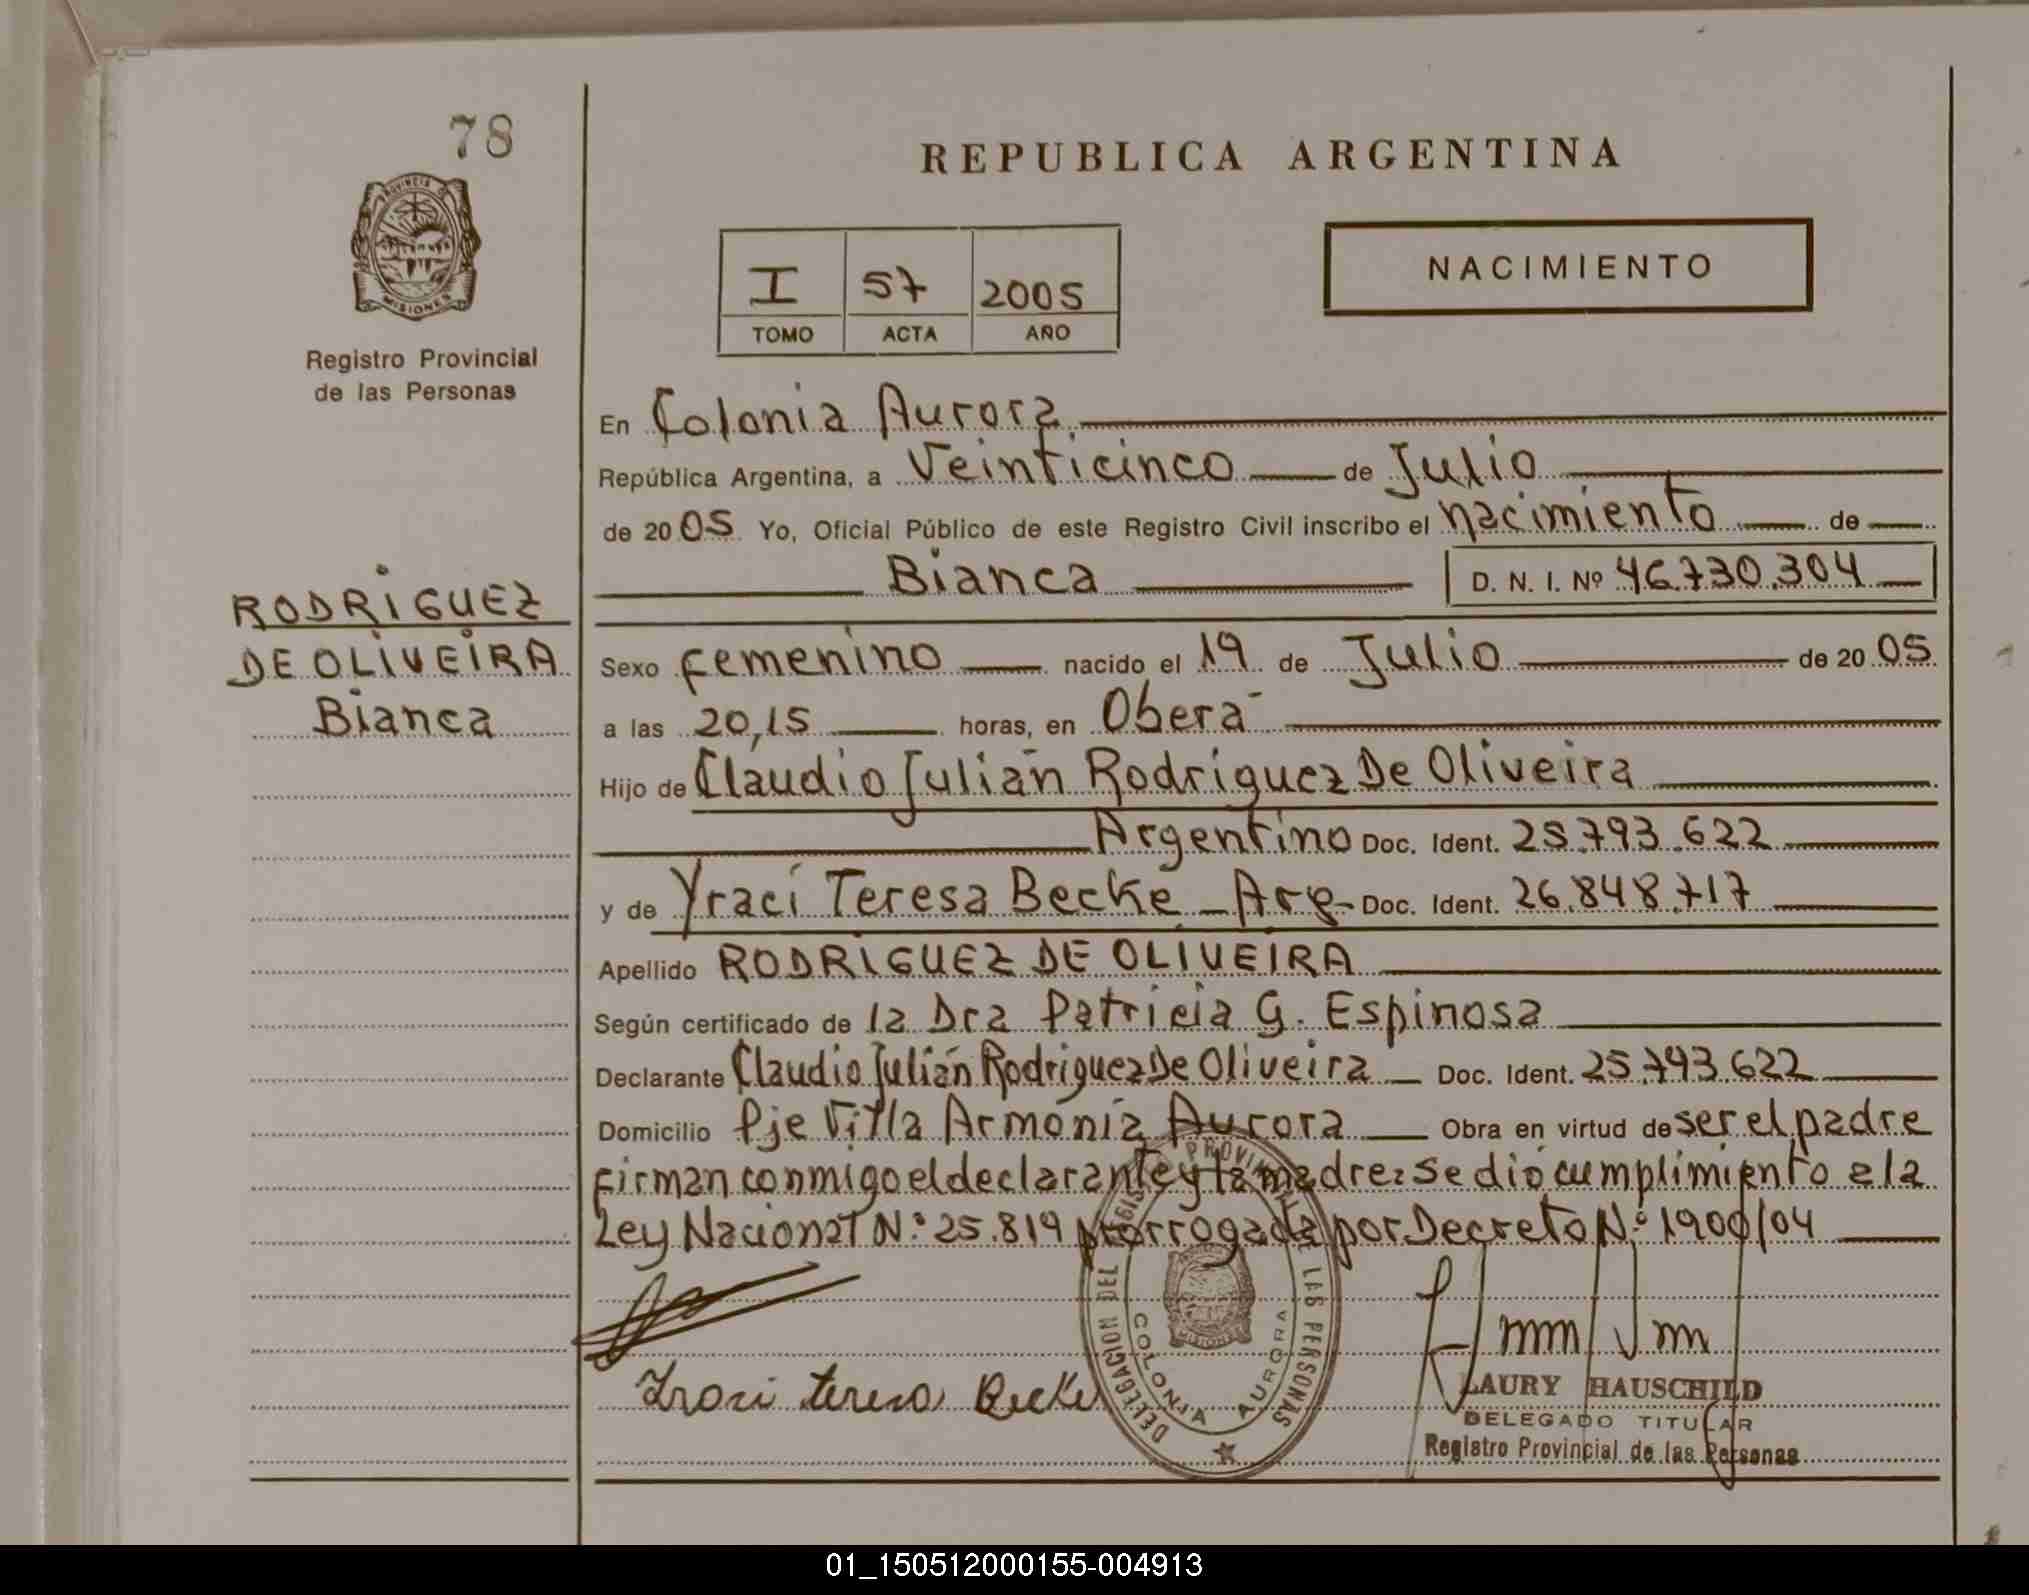 78
PROVINCIA DE
MISIONES
Registro Provincial
de las Personas
RODRIGUEZ
DE OLIVEIRA
Bianca
REPUBLICA ARGENTINA
I 57 2005
TOMO ACTA AÑO
NACIMIENTO
En Colonia Aurora
República Argentina, a Veinticinco de Julio
de 2005 Yo, Oficial Público de este Registro Civil inscribo el nacimiento de
Bianca D. N. I. Nº 46.730.304
Sexo femenino nacido el 19 de Julio de 2005
a las 20,15 horas, en Oberá
Hijo de Claudio Julián Rodriguez De Oliveira
Argentino Doc. Ident. 25.793.622
y de Yraci Teresa Becke Arg- Doc. Ident. 26.848.717
Apellido RODRIGUEZ DE OLIVEIRA
Según certificado de la Dra Patricia G. Espinosa
Declarante Claudio Julián Rodriguez De Oliveira Doc. Ident. 25.793.622
Domicilio Pje Villa Armonía Aurora Obra en virtud de ser el padre
firman conmigo el declarante y la madre: Se dió cumplimiento a la
Ley Nacional N° 25.819 prorrogada por Decreto N° 1900/04
Iraci teresa Becke
DELEGACION DEL REGISTRO PROVINCIAL DE LAS PERSONAS
COLONIA AURORA
MISIONES
LAURY HAUSCHILD
DELEGADO TITULAR
Registro Provincial de las Personas
01_150512000155-004913